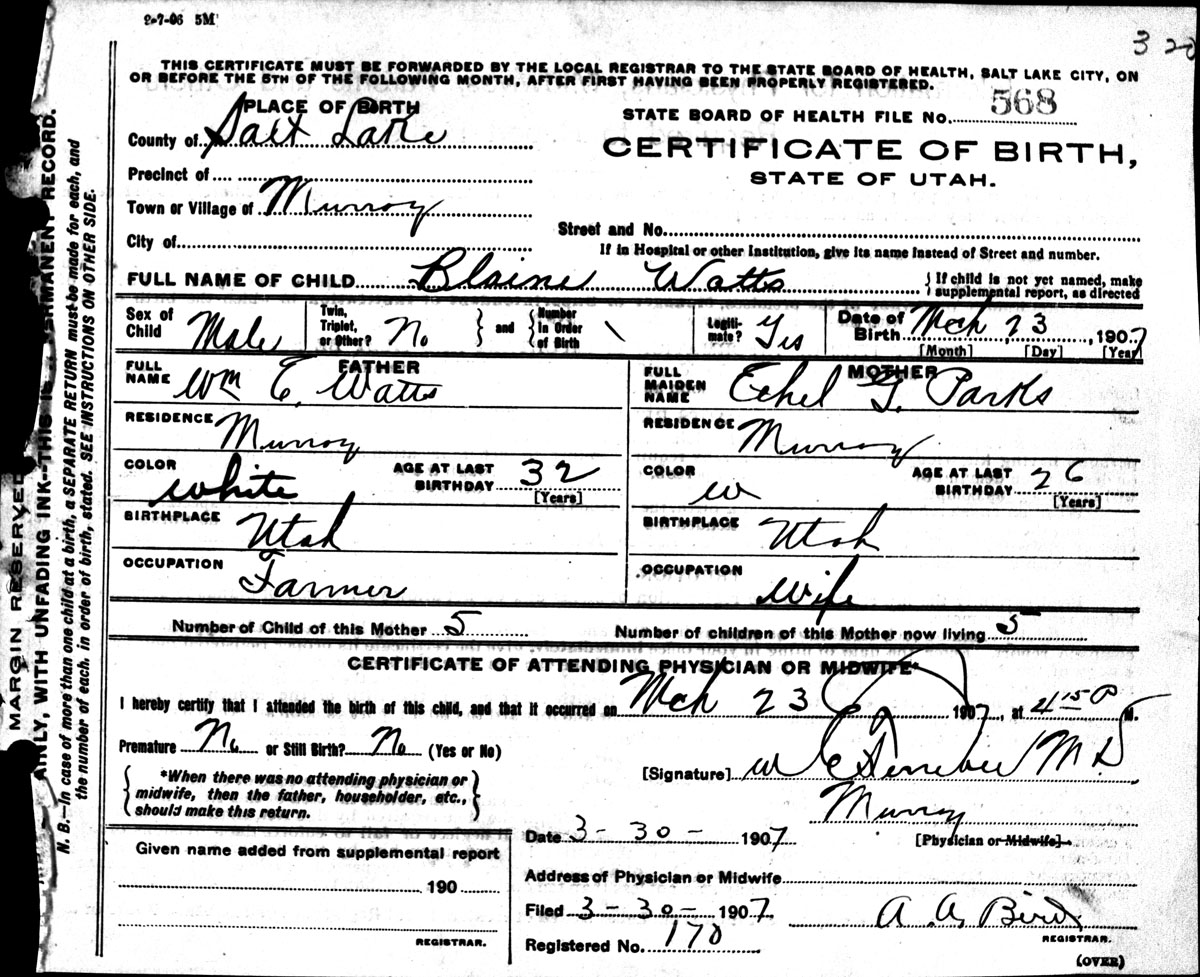 2-7-06 5M
3 20
THIS CERTIFICATE MUST BE FORWARDED BY THE LOCAL REGISTRAR TO THE STATE BOARD OF HEALTH, SALT LAKE CITY, ON
OR BEFORE THE 5TH OF THE FOLLOWING MONTH, AFTER FIRST HAVING BEEN PROPERLY REGISTERED.
PLACE OF BIRTH
STATE BOARD OF HEALTH FILE No. 568
County of Salt Lake
CERTIFICATE OF BIRTH,
STATE OF UTAH.
Precinct of
Town or Village of Murray
Street and No.
City of
If in Hospital or other Institution, give its name instead of Street and number.
FULL NAME OF CHILD Blaine Watts
{If child is not yet named, make
supplemental report, as directed
Sex of Child Male
Twin, Triplet, or Other? No } and { Number in Order of Birth \
Legitimate? Yes
Date of Birth Mch 23, 1907
[Month] [Day] [Year]
FATHER
FULL NAME Wm E. Watts
MOTHER
FULL MAIDEN NAME Ethel G. Parks
RESIDENCE Murray
RESIDENCE Murray
COLOR White AGE AT LAST BIRTHDAY 32 [Years]
COLOR W AGE AT LAST BIRTHDAY 26 [Years]
BIRTHPLACE Utah
BIRTHPLACE Utah
OCCUPATION Farmer
OCCUPATION Wife
Number of Child of this Mother 5 Number of children of this Mother now living 5
CERTIFICATE OF ATTENDING PHYSICIAN OR MIDWIFE*
I hereby certify that I attended the birth of this child, and that it occurred on Mch 23 1907, at 4 15 P M.
Premature No or Still Birth? No (Yes or No)
[Signature] W M D
{ *When there was no attending physician or
midwife, then the father, householder, etc.,
should make this return. }
Murray
[Physician or Midwife]
Date 3-30- 1907
Given name added from supplemental report
190
REGISTRAR.
Address of Physician or Midwife
Filed 3-30- 1907
A. A. Bird
REGISTRAR.
Registered No. 170
(OVER)
MARGIN RESERVED
AINLY, WITH UNFADING INK--THIS IS PERMANENT RECORD.
N. B.—In case of more than one child at a birth, a SEPARATE RETURN must be made for each, and
the number of each, in order of birth, stated. SEE INSTRUCTIONS ON OTHER SIDE.